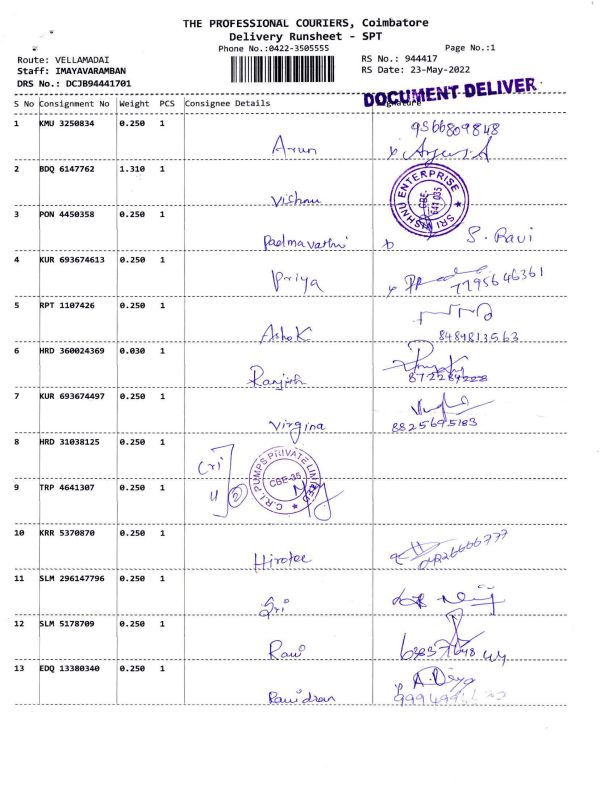 THE PROFESSIONAL COURIERS, Coimbatore
Delivery Runsheet - SPT
Phone No.:0422-3505555 Page No.:1
Route: VELLAMADAI RS No.: 944417
Staff: IMAYAVARAMBAN RS Date: 23-May-2022
DRS No.: DCJB94441701
DOCUMENT DELIVER
S No Consignment No Weight PCS Consignee Details
1 KMU 3250834 0.250 1 9566809848
Arun
2 BDQ 6147762 1.310 1
Vishnu SRI VISHNU ENTERPRISE CBE- 641 035
3 PON 4450358 0.250 1
Padmavathi S. Ravi
4 KUR 693674613 0.250 1
Priya 7795646361
5 RPT 1107426 0.250 1
Ashok 8489813563
6 HRD 360024369 0.030 1
Ranjith 872284228
7 KUR 693674497 0.250 1
Virgina 8825695183
8 HRD 31038125 0.250 1
Cri C.R.I. PUMPS PRIVATE LIMITED CBE-35
9 TRP 4641307 0.250 1
10 KRR 5370870 0.250 1
Hirotec 04226666777
11 SLM 296147796 0.250 1
Sri
12 SLM 5178709 0.250 1
Ravi
13 EDQ 13380340 0.250 1
Ravidran